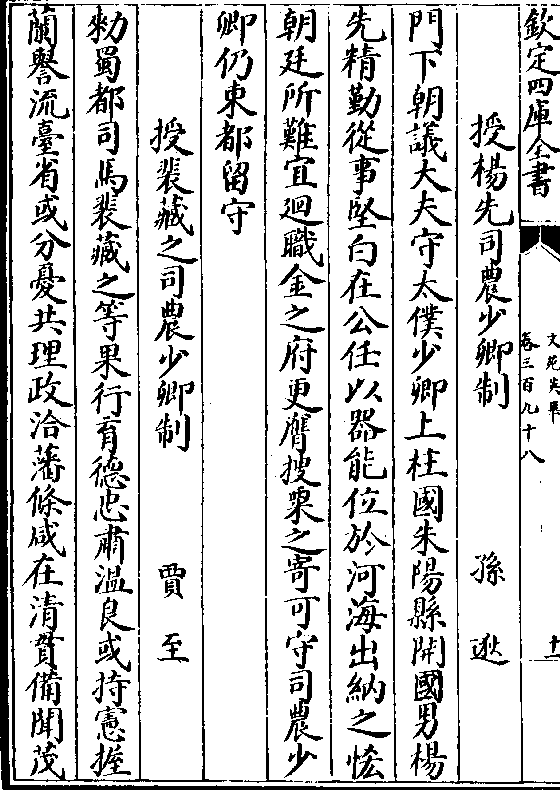 欽定四庫全書
文苑英華
卷三百九十八
十一
授楊先司農少卿制 孫逖
門下朝議大夫守太僕少卿上柱國朱陽縣開國男楊
先精勤從事堅白在公任以器能位於河海出納之恡
朝廷所難宜迴職金之府更膺搜粟之寄可守司農少
卿仍東都留守
授裴藏之司農少卿制 賈至
勑蜀都司馬裴藏之等果行育德忠肅溫良或持憲握
蘭譽流臺省或分憂共理政洽藩條咸在清貫備聞茂